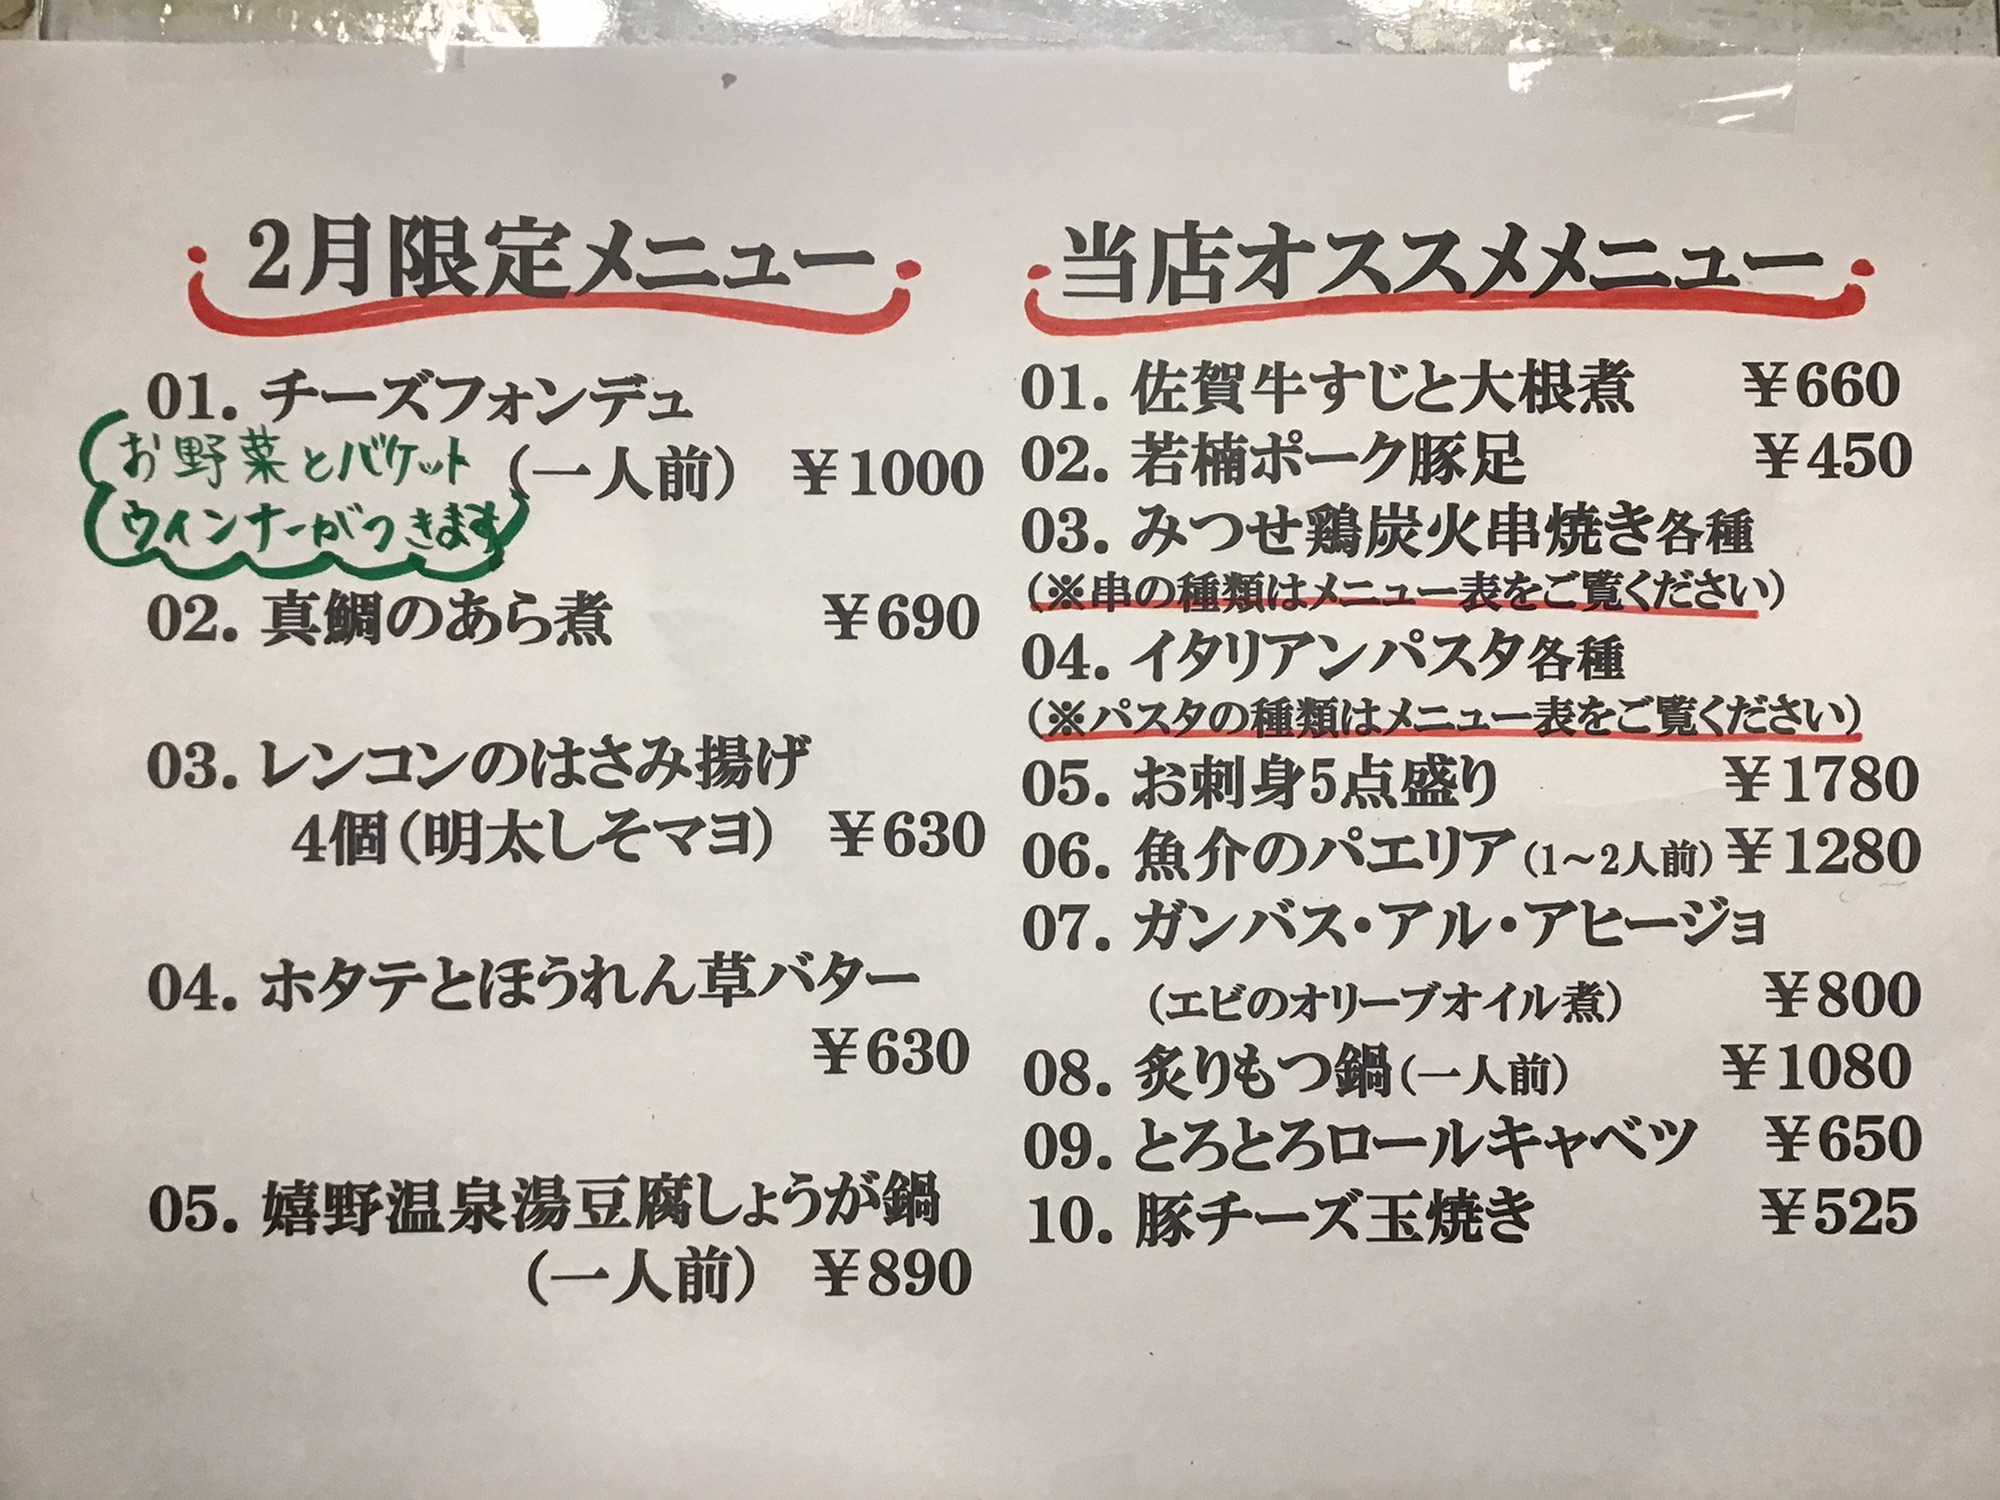 2月限定メニュー
01. チーズフォンデュ
お野菜とバケット
(一人前) ￥1000
ウインナーがつきます
02. 真鯛のあら煮 ￥690
03. レンコンのはさみ揚げ
4個(明太しそマヨ) ￥630
04. ホタテとほうれん草バター
￥630
05. 嬉野温泉湯豆腐しょうが鍋
(一人前) ￥890
当店オススメメニュー
01. 佐賀牛すじと大根煮 ￥660
02. 若楠ポーク豚足 ￥450
03. みつせ鶏炭火串焼き各種
(※串の種類はメニュー表をご覧ください)
04. イタリアンパスタ各種
(※パスタの種類はメニュー表をご覧ください)
05. お刺身5点盛り ￥1780
06. 魚介のパエリア(1～2人前) ￥1280
07. ガンバス・アル・アヒージョ
(エビのオリーブオイル煮) ￥800
08. 炙りもつ鍋(一人前) ￥1080
09. とろとろロールキャベツ ￥650
10. 豚チーズ玉焼き ￥525